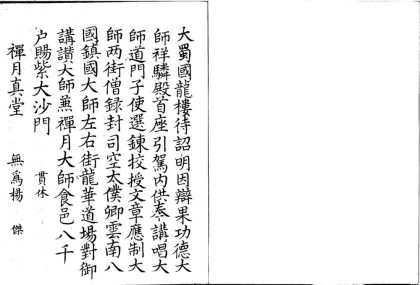 大蜀國龍樓待詔明因辯果功德大
師祥驎殿首座引駕内供奉講唱大
師道門子使選鍊挍授文章應制大
師兩街僧録封司空太僕卿雲南八
國鎮國大師左右街龍華道塲對御
講讃大師兼禪月大師食邑八千
户賜紫大沙門 貫休
禪月真堂 無爲楊 傑